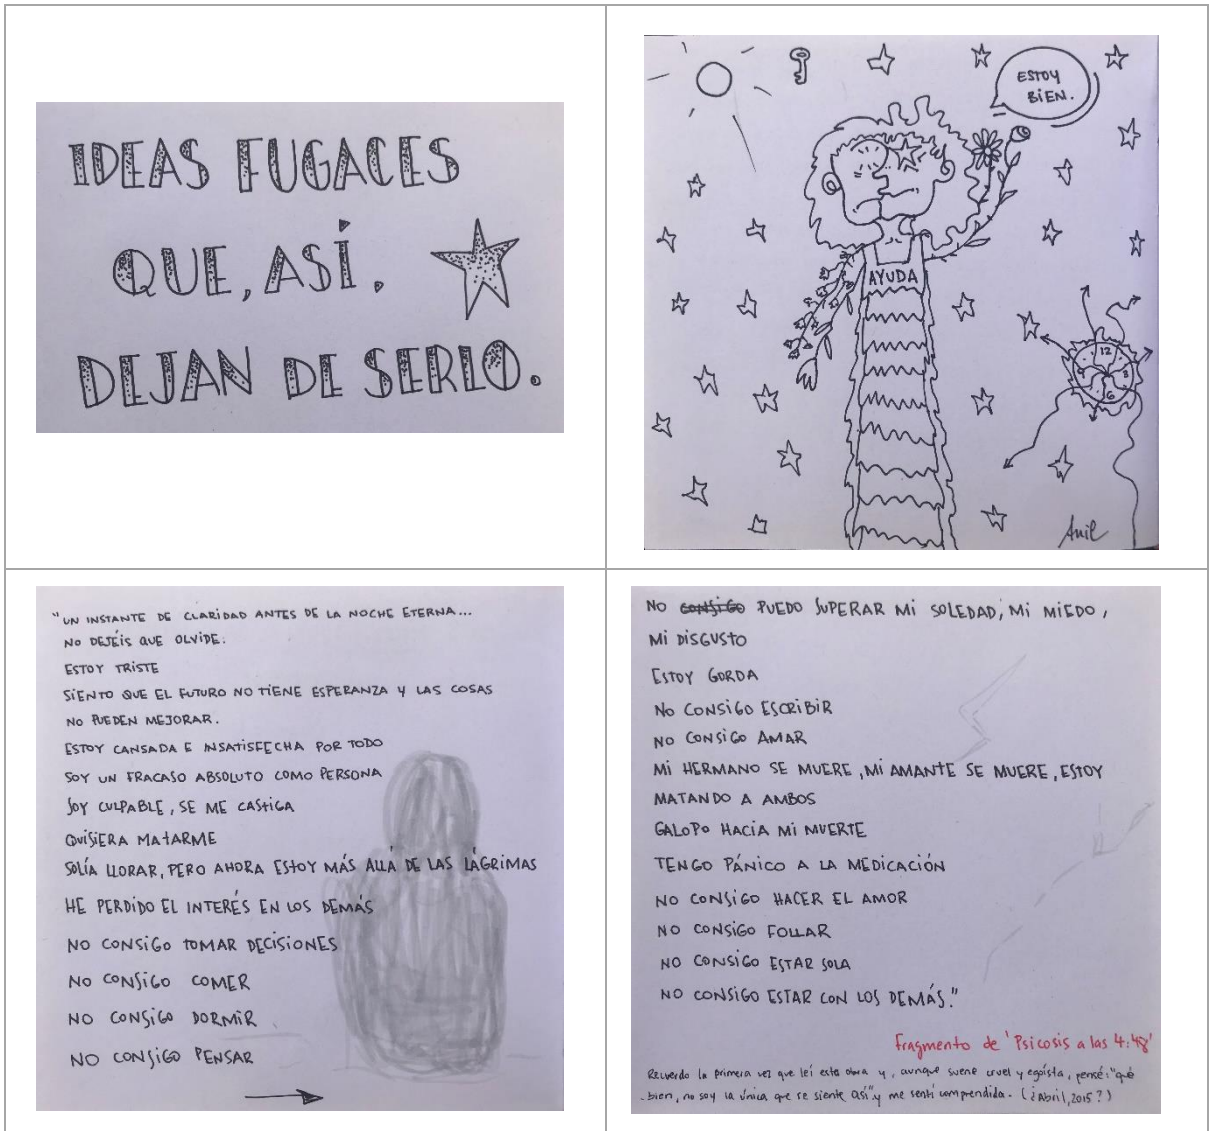 IDEAS FUGACES
QUE, ASÍ,
DEJAN DE SERLO.
ESTOY
BIEN.
AYUDA
12
3
6
Anil
"UN INSTANTE DE CLARIDAD ANTES DE LA NOCHE ETERNA...
NO DEJÉIS QUE OLVIDE.
ESTOY TRISTE
SIENTO QUE EL FUTURO NO TIENE ESPERANZA Y LAS COSAS
NO PUEDEN MEJORAR.
ESTOY CANSADA E INSATISFECHA POR TODO
SOY UN FRACASO ABSOLUTO COMO PERSONA
SOY CULPABLE, SE ME CASTIGA
QUISIERA MATARME
SOLÍA LLORAR, PERO AHORA ESTOY MÁS ALLÁ DE LAS LÁGRIMAS
HE PERDIDO EL INTERÉS EN LOS DEMÁS
NO CONSIGO TOMAR DECISIONES
NO CONSIGO COMER
NO CONSIGO DORMIR
NO CONSIGO PENSAR
NO CONSIGO PUEDO SUPERAR MI SOLEDAD, MI MIEDO,
MI DISGUSTO
ESTOY GORDA
NO CONSIGO ESCRIBIR
NO CONSIGO AMAR
MI HERMANO SE MUERE, MI AMANTE SE MUERE, ESTOY
MATANDO A AMBOS
GALOPO HACIA MI MUERTE
TENGO PÁNICO A LA MEDICACIÓN
NO CONSIGO HACER EL AMOR
NO CONSIGO FOLLAR
NO CONSIGO ESTAR SOLA
NO CONSIGO ESTAR CON LOS DEMÁS."
Fragmento de 'Psicosis a las 4:48'
Recuerdo la primera vez que leí esta obra y, aunque suene cruel y egoísta, pensé: "qué
bien, no soy la única que se siente así" y me sentí comprendida. (¿Abril, 2015?)